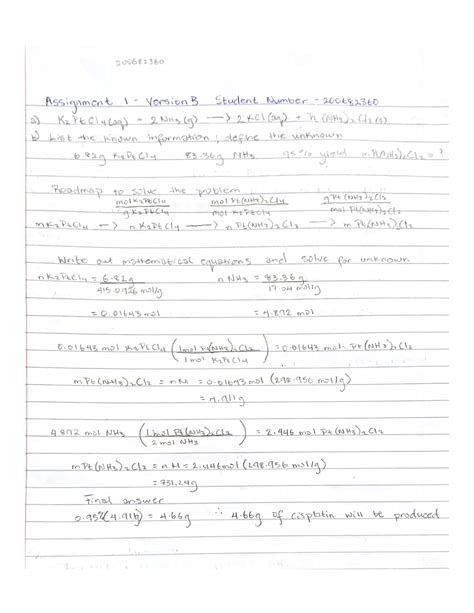 200682360
Assignment 1 - Version B Student Number - 200682360
a) K2PtCl4(aq) + 2NH3(g) → 2KCl(aq) + Pt(NH3)2Cl2(s)
b) List the known information; define the unknown
6.82g K2PtCl4 83.36g NH3 95% yield mPt(NH3)2Cl2 = ?
Roadmap to solve the problem
mol K2PtCl4 mol Pt(NH3)2Cl2 g Pt(NH3)2Cl2
g K2PtCl4 mol K2PtCl4 mol Pt(NH3)2Cl2
m K2PtCl4 → n K2PtCl4 → n Pt(NH3)2Cl2 → m Pt(NH3)2Cl2
Write out mathematical equations and solve for unknown
n K2PtCl4 = 6.82g n NH3 = 83.36g
415.0926 mol/g 17.04 mol/g
= 0.01643 mol = 4.892 mol
0.01643 mol K2PtCl4 (1mol Pt(NH3)2Cl2 / 1mol K2PtCl4) = 0.01643 mol Pt(NH3)2Cl2
mPt(NH3)2Cl2 = nM = 0.01643 mol (298.956 mol/g)
= 4.911g
4.892 mol NH3 (1mol Pt(NH3)2Cl2 / 2 mol NH3) = 2.446 mol Pt(NH3)2Cl2
mPt(NH3)2Cl2 = nM = 2.446mol (298.956 mol/g)
= 731.24g
Final answer
0.95(4.91g) = 4.66g ∴ 4.66g of cisplatin will be produced